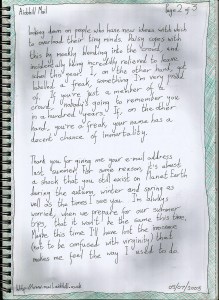 Axbbill Mail page 2 of 3
looking down on people who have new ideas with which
to overload their tiny minds. Daisy copes with
this by meekly blending into the crowd, and
incidentally being incredibly relieved to leave
school this year. I, on the other hand, got
labelled a freak, something I'm very proud
of. If you're just a member of a
crowd, nobody's going to remember you
in a hundred years. If, on the other
hand, you're a freak, your name has a
decent chance of immortality.
Thank you for giving me your e-mail address
last summer. For some reason, it's almost
a shock that you still exist on Planet Earth
during the autumn, winter and spring as
well as the times I see you. I'm always
worried, when we prepare for our summer
trips, that it won't be the same this time.
Maybe this time I'll have lost the innocence
(not to be confused with virginity) that
makes me feel the way I used to do.